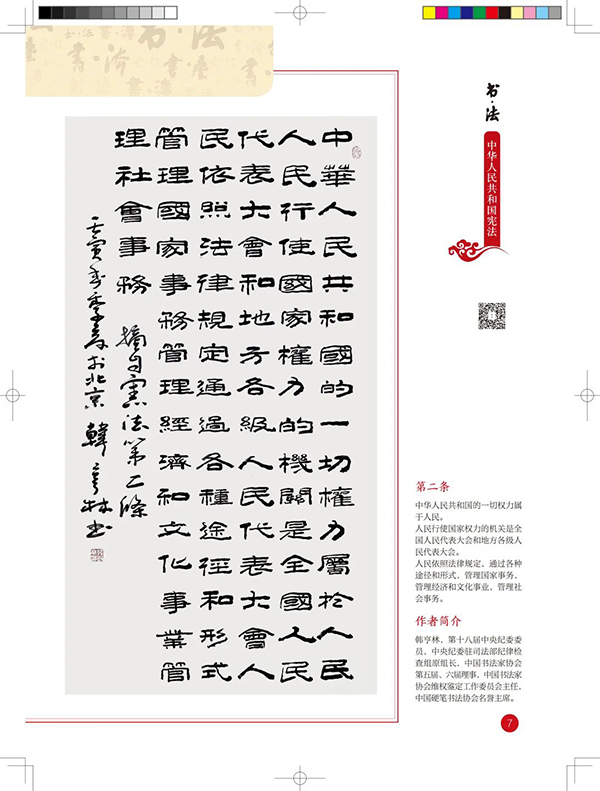 书·法
中华人民共和国宪法
中華人民共和國的一切權力屬於人民
人民行使國家權力的機關是全國人民
代表大會和地方各級人民代表大會人
民依照法律規定通過各種途徑和形式
管理國家事務管理經濟和文化事業管
理社會事務
摘自憲法第二條
壬寅 於北京 韓亨林书
第二条
中华人民共和国的一切权力属
于人民。
人民行使国家权力的机关是全
国人民代表大会和地方各级人
民代表大会。
人民依照法律规定，通过各种
途径和形式，管理国家事务，
管理经济和文化事业，管理社
会事务。
作者简介
韩亨林，第十八届中央纪委委
员，中央纪委驻司法部纪律检
查组原组长，中国书法家协会
第五届、六届理事，中国书法家
协会维权鉴定工作委员会主任，
中国硬笔书法协会名誉主席。
7